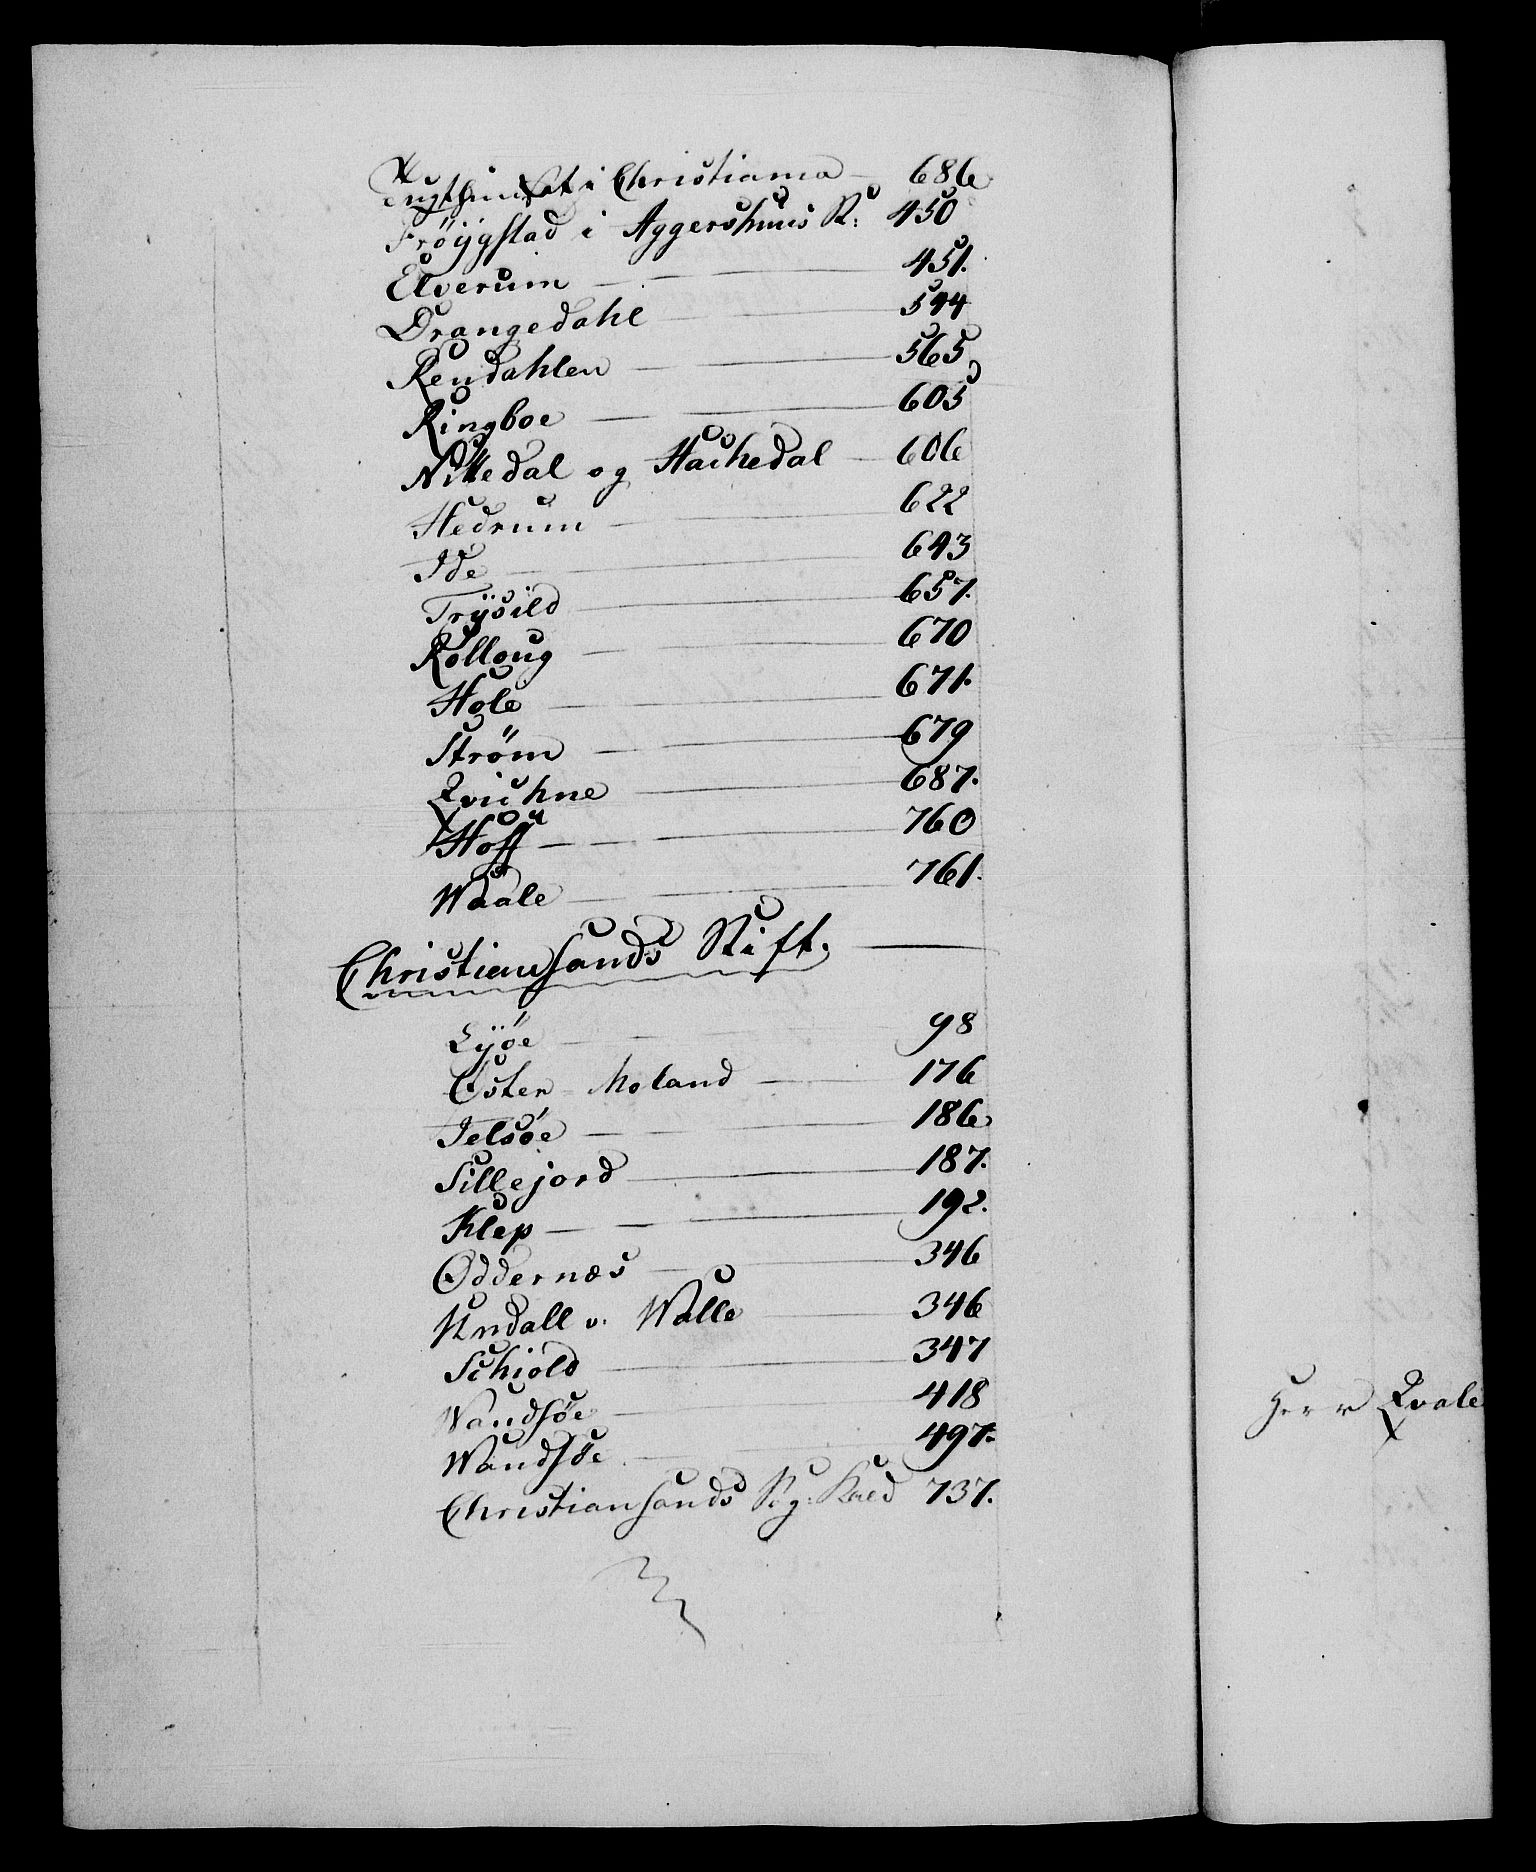 Tugthuuset i Christiania — 686.
Frøÿgstad i Aggershuus St: 450
Elverum — 451.
Drangedahl — 544
Rendahlen — 565
Ringboe — 605
Nittedal og Hachedal — 606
Hedrum — 622
Ide — 643
Trÿsild — 657.
Rolloug — 670
Hole — 671.
Strøm — 679
Qvichne — 687.
Hoff — 760
Waale — 761.
Christiansands Stift. —
Lÿøe — 98
Øster Moland — 176
Jelsøe — 186.
Sillejord — 187.
Klep — 192.
Oddernæs — 346
Undall v. Walle — 346
Schiold — 347
Wandsøe — 418
Wandsøe — 497.
Christiansands Sog: Kald 737.
Herr Qvale